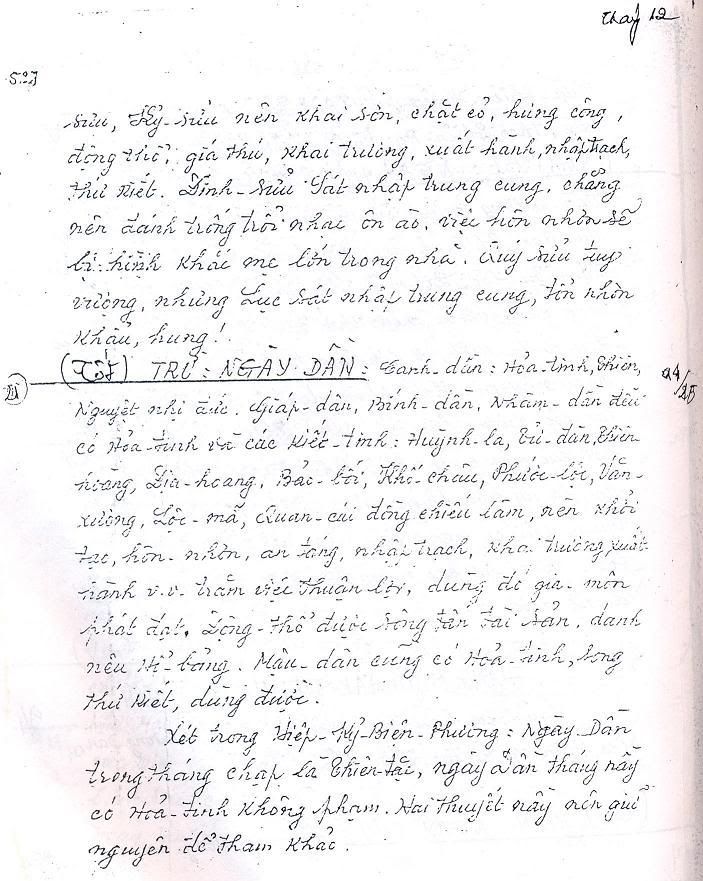 Tháng 12
sửu, Kỷ-sửu nên khai sơn, chặt cỏ, hưng công,
động thổ, giá thú, khai trương, xuất hành, nhập trạch,
thứ kiết. Đinh-sửu Sát nhập trung cung, chẳng
nên đánh trống trổi nhạc ồn ào, việc hôn nhơn sẽ
bị hình khắc mẹ lớn trong nhà. Quý sửu tuy
vượng, nhưng Lục sát nhập trung cung, tổn nhơn
khẩu, hung!
(Tốt) TRỪ: NGÀY DẦN: Canh-dần: Hỏa-tinh, Thiên,
24/25
III
Nguyệt nhị đức. Giáp-dần, Bính-dần, Nhâm-dần đều
có Hỏa-tinh và các kiết-tinh: Huỳnh-la, Tử-đàn, Thiên
hoàng, Địa-hoàng, Bảo-bối, Khố-châu, Phước-lộc, Văn-
xương, Lộc-mã, Quan-cái đồng chiếu lâm, nên khởi
tạo, hôn-nhơn, an táng, nhập trạch, khai trương, xuất
hành v.v. trăm việc thuận lợi, dùng đó gia-môn
phát đạt. Động-thổ được sống tấn tài sản, danh
nêu hổ bảng. Mậu-dần cũng có Hỏa-tinh, song
thứ kiết, dùng được.
Xét trong Hiệp-Kỷ-Biện-Phương: Ngày Dần
trong tháng chạp là Thiên-tặc, ngày Dần tháng nầy
có Hỏa-tinh không phạm. Hai thuyết nầy nên giữ
nguyên để tham khảo.